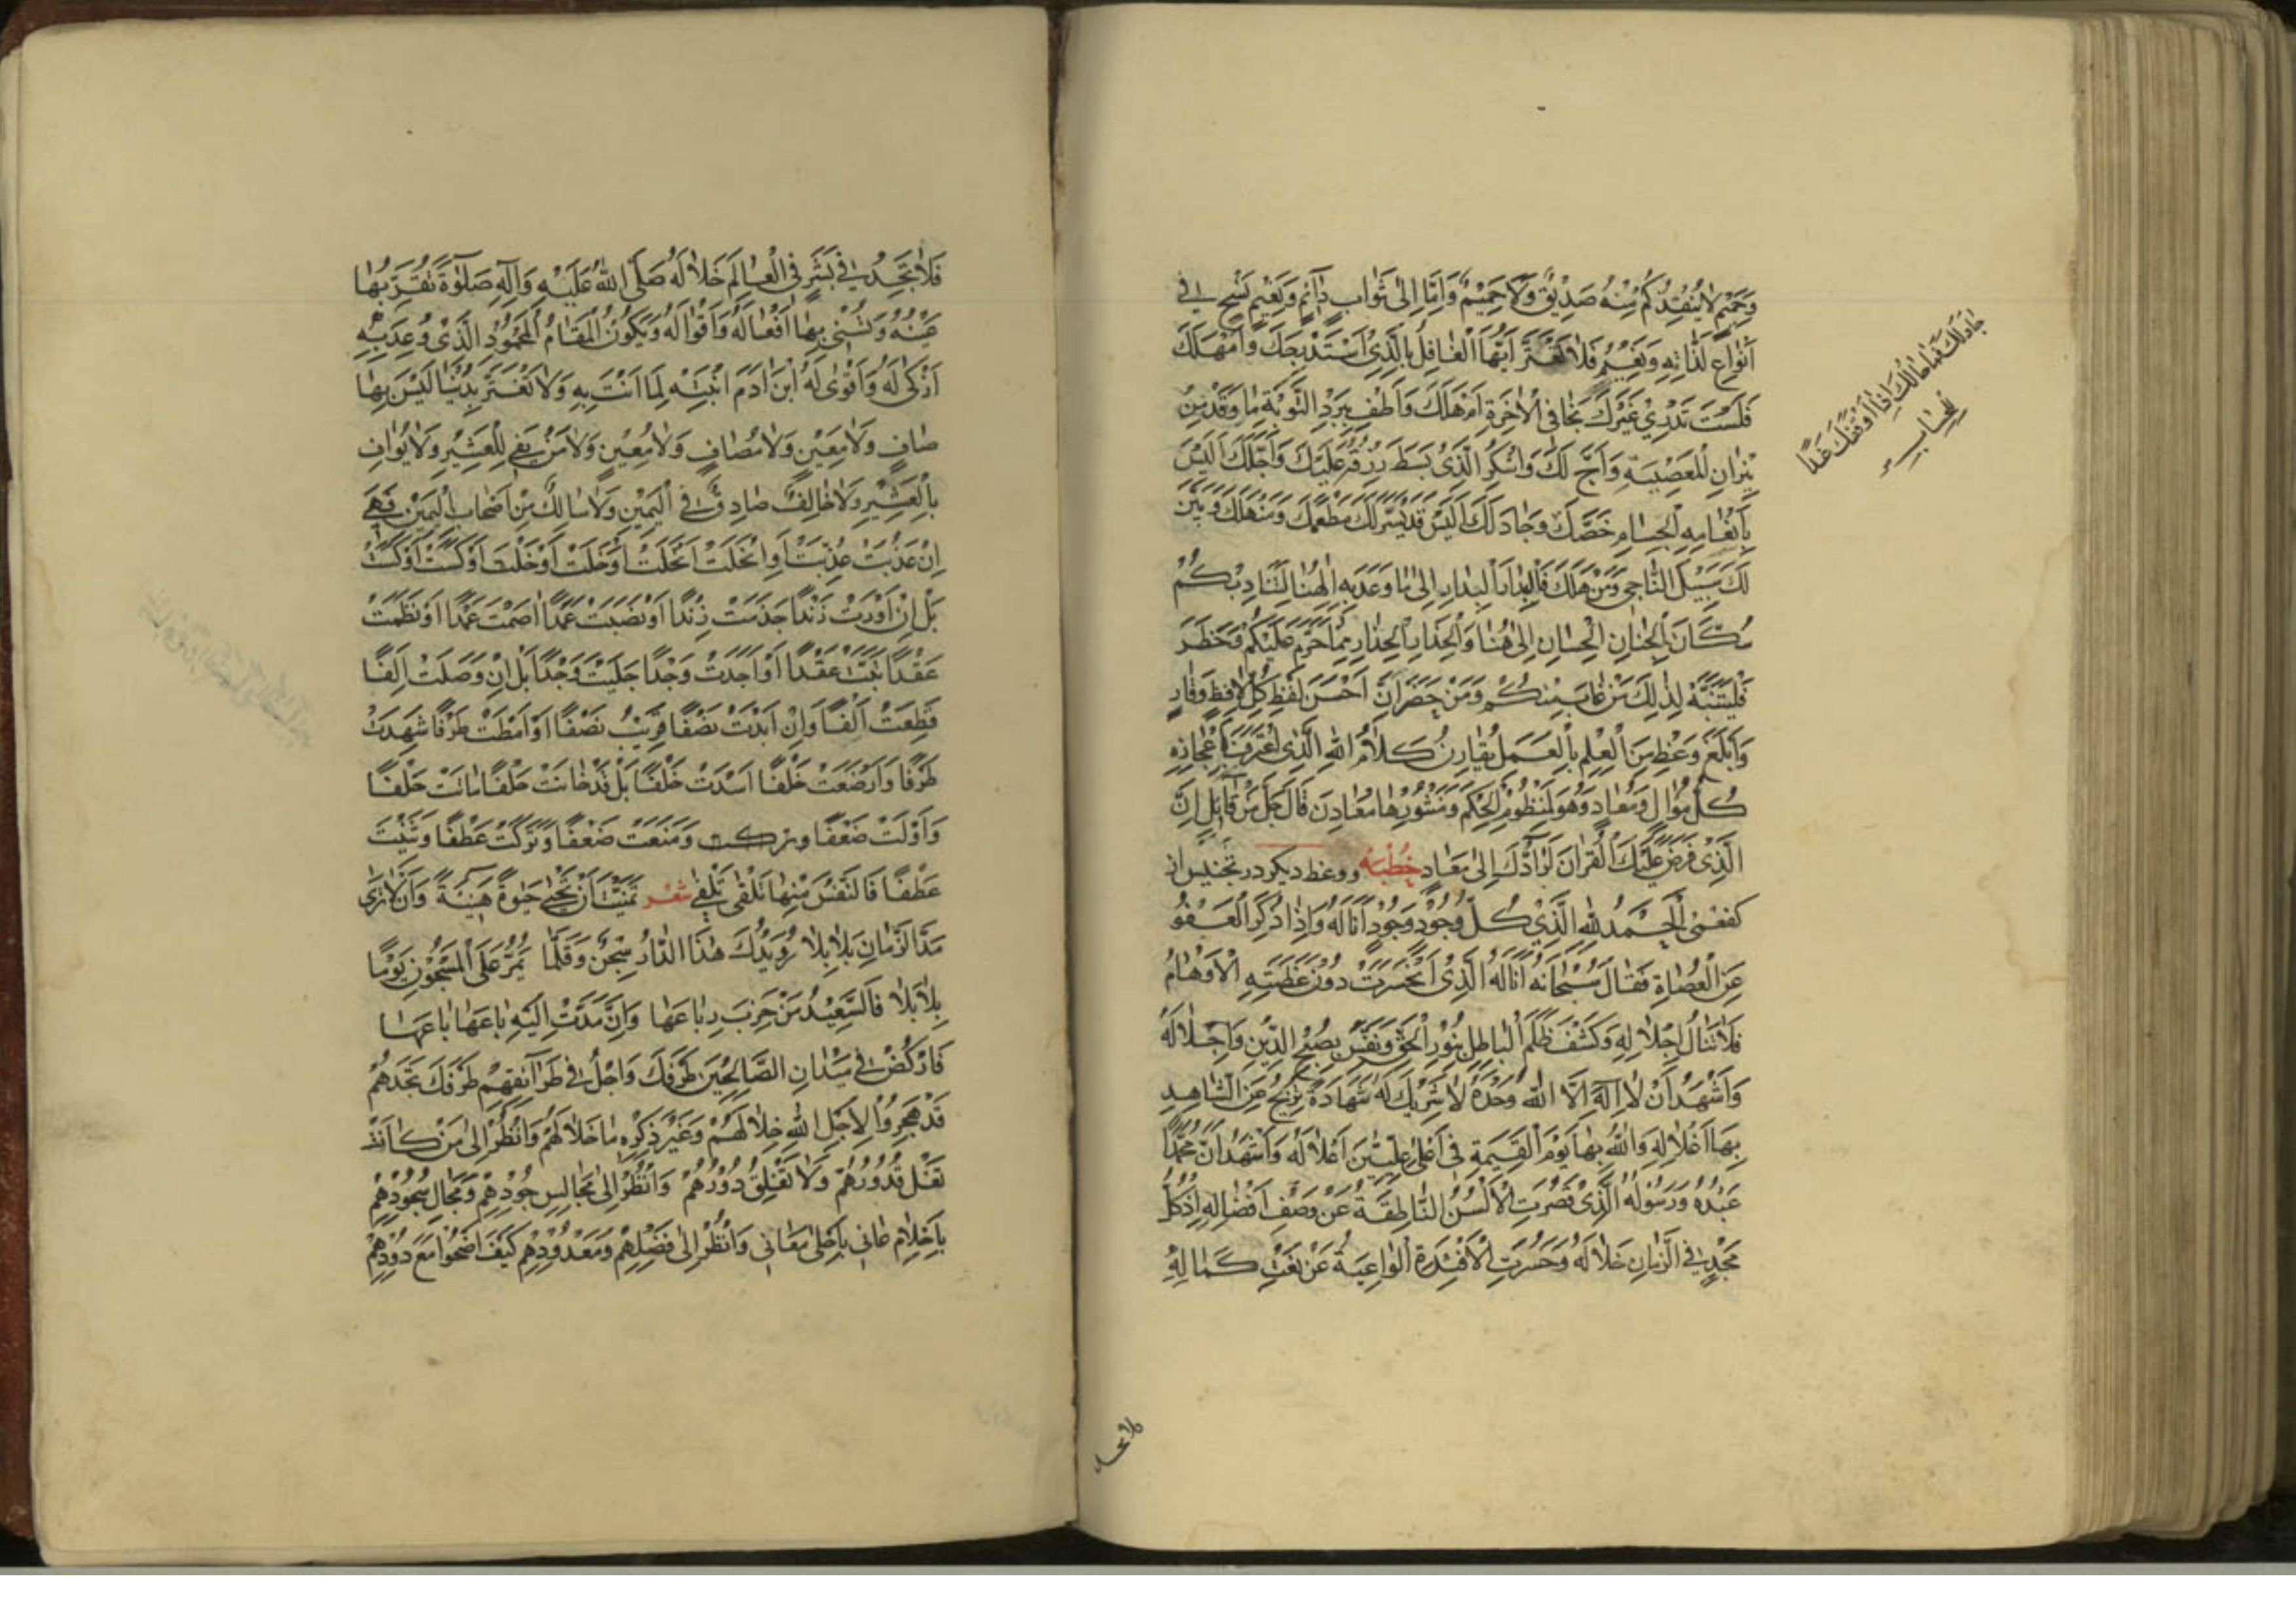 وَحَمِيمٍ لَا يُنْقِذُكُمْ مِنْهُ صَدِيقٌ وَلَا حَمِيمٌ وَاِمَّا اِلٰى ثَوَابٍ دَائِمٍ وَنَعِيمٍ فِي
اَنْوَاعِ لَذَّاتِهِ وَنَعِيمٍ فَلَا تَغْتَرَّ اَيُّهَا الْغَافِلُ بِالَّذِي اسْتَدْرَجَكَ وَاَمْهَلَكَ
فَلَسْتَ تَدْرِي غَيْرَكَ نَجَا فِي الْآخِرَةِ اَمْ هَلَكَ وَاَطْفِ بِبَرْدِ التَّوْبَةِ مَا وَقَدَ مِنْ
نِيرَانِ الْمَعْصِيَةِ وَاَجَّ لَكَ وَاشْكُرِ الَّذِي بَسَطَ رِزْقَهُ عَلَيْكَ وَاَجَّلَكَ اَلَيْسَ
بِاَنْعَامِهِ الْجِسَامِ خَصَّكَ وَجَادَ لَكَ اَلَيْسَ قَدْ يَسَّرَ لَكَ مَطْعَمَكَ وَمَنْهَلَكَ وَبَيَّنَ
لَكَ سَبِيلَ النَّاجِي وَمَنْ هَلَكَ فَالْبِدَارَ الْبِدَارِ اِلٰى مَا وَعَدَ بِهِ اِلٰهُنَا لِتُنَادِيَكُمْ
سُكَّانَ الْجِنَانِ الْحِسَانِ اِلٰى هُنَا وَالْحِذَارَ الْحِذَارِ مِمَّا حَرَّمَ عَلَيْكُمْ وَحَظَرَ
فَلْيَتَنَبَّهْ لِذٰلِكَ مَنْ غَابَ مِنْكُمْ وَمَنْ حَضَرَ اِنَّ اَحْسَنَ لَفْظِ كُلِّ لَافِظٍ وَقَارٍ
وَاَبْلَغَ وَعْظٍ مِنَ الْعِلْمِ بِالْعَمَلِ يُقَارِنُ كَلَامُ اللهِ الَّذِي اعْتَرَفَ بِاِعْجَازِهِ
كُلُّ مُوَالٍ وَمُعَادٍ وَهُوَ لِمَنْظُومِ الْحِكَمِ وَمَنْثُورِهَا مَعَادِنَ قَالَ جَلَّ مَنْ قَائِلٍ اِنَّ
الَّذِي فَرَضَ عَلَيْكَ الْقُرْاٰنَ لَرَادُّكَ اِلٰى مَعَادٍ خُطْبَه و وعظ ديكر در تجنيس از
كفعمى الْحَمْدُ لِلّٰهِ الَّذِي كُلُّ وُجُودٍ وَجُودٍ اَنَالَهُ وَاِذَا ذُكِرَ الْعَفْوُ
عَنِ الْعُصَاةِ فَقَالَ سُبْحَانَهُ اَنَا لَهُ الَّذِي انْحَسَرَتْ دُونَ عَظَمَتِهِ الْاَوْهَامُ
فَلَا تَنَالُ اِجْلَالِهِ وَكَشَفَ ظُلَمَ الْبَاطِلِ بِنُورِ الْحَقِّ وَنَفَّسَ بِصُبْحِ الدِّينِ وَاَجْلَالَهُ
وَاَشْهَدُ اَنْ لَا اِلٰهَ اِلَّا اللهُ وَحْدَهُ لَا شَرِيكَ لَهُ شَهَادَةً تُزِيحُ عَنِ الشَّاهِدِ
بِهَا اَغْلَالِهِ وَاللهُ بِهَا يَوْمَ الْقِيٰمَةِ فِي اَعْلٰى عِلِّيِّينَ اَعْلَا لَهُ وَاَشْهَدُ اَنَّ مُحَمَّدًا
عَبْدُهُ وَرَسُولُهُ الَّذِي قَصُرَتِ الْاَلْسُنُ النَّاطِقَةُ عَنْ وَصْفِ اَفْضَالِهِ اِذْ كُلُّ
مَجْدٍ فِي الزَّمَانِ خَلَا لَهُ وَحَسَرَتِ الْاَفْئِدَةُ الْوَاعِيَةُ عَنْ نَعْتِ كَمَالِهِ
جادلك فما حالك اذا اوقفك غدا
للحساب
فلا تجد
فَلَا تَجِدُ فِي بَشَرٍ فِي الْعَالَمِ خَلَالَهُ صَلَّى اللهُ عَلَيْهِ وَآلِهِ صَلٰوةً تُقَرُّ بِهَا
عَيْنُهُ وَتُسْنٰى بِهَا اَفْعَالُهُ وَاَقْوَالُهُ وَيَكُونُ الْمَقَامُ الْمَحْمُودُ الَّذِي وُعِدَ بِهِ
اَزْكٰى لَهُ وَاَقْوٰى لَهُ ابْنَ اٰدَمَ انْتَبِهْ لِمَا اَنْتَ بِهِ وَلَا تَغْتَرَّ بِدُنْيَا لَيْسَ بِهَا
صَافٍ وَلَا مَعِينٍ وَلَا مُصَافٍ وَلَا مُعِينٍ وَلَا مَنْ يَفِي لِلْعَشِيرِ وَلَا يُوَافِ
بِالْعَشِيرِ وَلَا حَالِفٌ صَادِقٌ فِي الْيَمِينِ وَلَا سَالِكٌ مِنْ اَصْحَابِ الْيَمِينِ فَهِيَ
اِنْ عَذُبَتْ عَذَّبَتْ اَوِ انْحَلَّتْ اَنْحَلَتْ اَوْ حَلَّتْ اَوْحَلَتْ اَوْ كَسَتْ اَوْكَسَتْ
بَلْ اِنْ اَوْرَتْ زَنْدًا جَذَمَتْ زَنْدًا اَوْ نَصَبَتْ عَمَدًا اَصْمَتْ عَمْدًا اَوْ نَظَمَتْ
عِقْدًا بَتَّتْ عَقْدًا اَوْ اَجَدَّتْ وَجْدًا جَلَبَتْ وَجْدًا بَلْ اِنْ وَصَلَتْ اِلْفًا
قَطَعَتْ اَلْفًا وَاِنْ اَبْدَتْ نَصْفًا نَصْفًا اَوْ اَمْطَتْ طِرْفًا شَهِدَتْ
طَرْفًا وَاَرْضَعَتْ خِلْفًا اَسْدَتْ خُلْفًا بَلْ قَدْ خَانَتْ حِلْفًا مَانَتْ حَلْفًا
وَاَوْلَتْ ضَعْفًا وبركت وَمَنَعَتْ ضِعْفًا وَتَرَكَتْ عَطْفًا وَثَنَتْ
عِطْفًا فَالنَّفْسُ مِنْهَا تَلْقٰى تَلَفِي شعر تَمَنَّيْتَ اَنْ تَحْيٰى حَيٰوةً هَنِيئَةً وَاَنْ لَا تَرٰى
مَدَا الزَّمَانِ بَلَابِلَا رُوَيْدَكَ هٰذَا الدَّارُ سِجْنٌ وَقَلَّمَا يَمُرُّ عَلَى الْمَسْجُونِ يَوْمًا
بِلَا بَلَا فَالسَّعِيدُ مَنْ خَرِبَ رِبَاعَهَا وَاِنْ مَدَّتْ اِلَيْهِ بَاعَهَا بَاعَهَا
فَارْكُضْ فِي مَيْدَانِ الصَّالِحِينَ طِرْفَكَ وَاَجِلْ فِي طَرَائِقِهِمْ طَرْفَكَ تَجِدْهُمْ
قَدْ هَجَرُوا لِاَجْلِ اللهِ خِلَالَهُمْ وَغَيْرُ ذِكْرِهِ مَا خَلَا لَهُمْ وَانْظُرْ اِلٰى مَنْ كَانَتْ
تَغْلِ قُدُورُهُمْ وَلَا تُغْلَقُ دُورُهُمْ وَانْظُرْ اِلٰى مَجَالِسِ جُودِهِمْ وَمَجَالِ سُجُودِهِمْ
بِاَحْلَامٍ مَعَانِي وَانْظُرْ اِلٰى فَضْلِهِمْ وَمَعْدُودِهِمْ كَيْفَ اَضْحَوْا مَعَ دُودِهِمْ